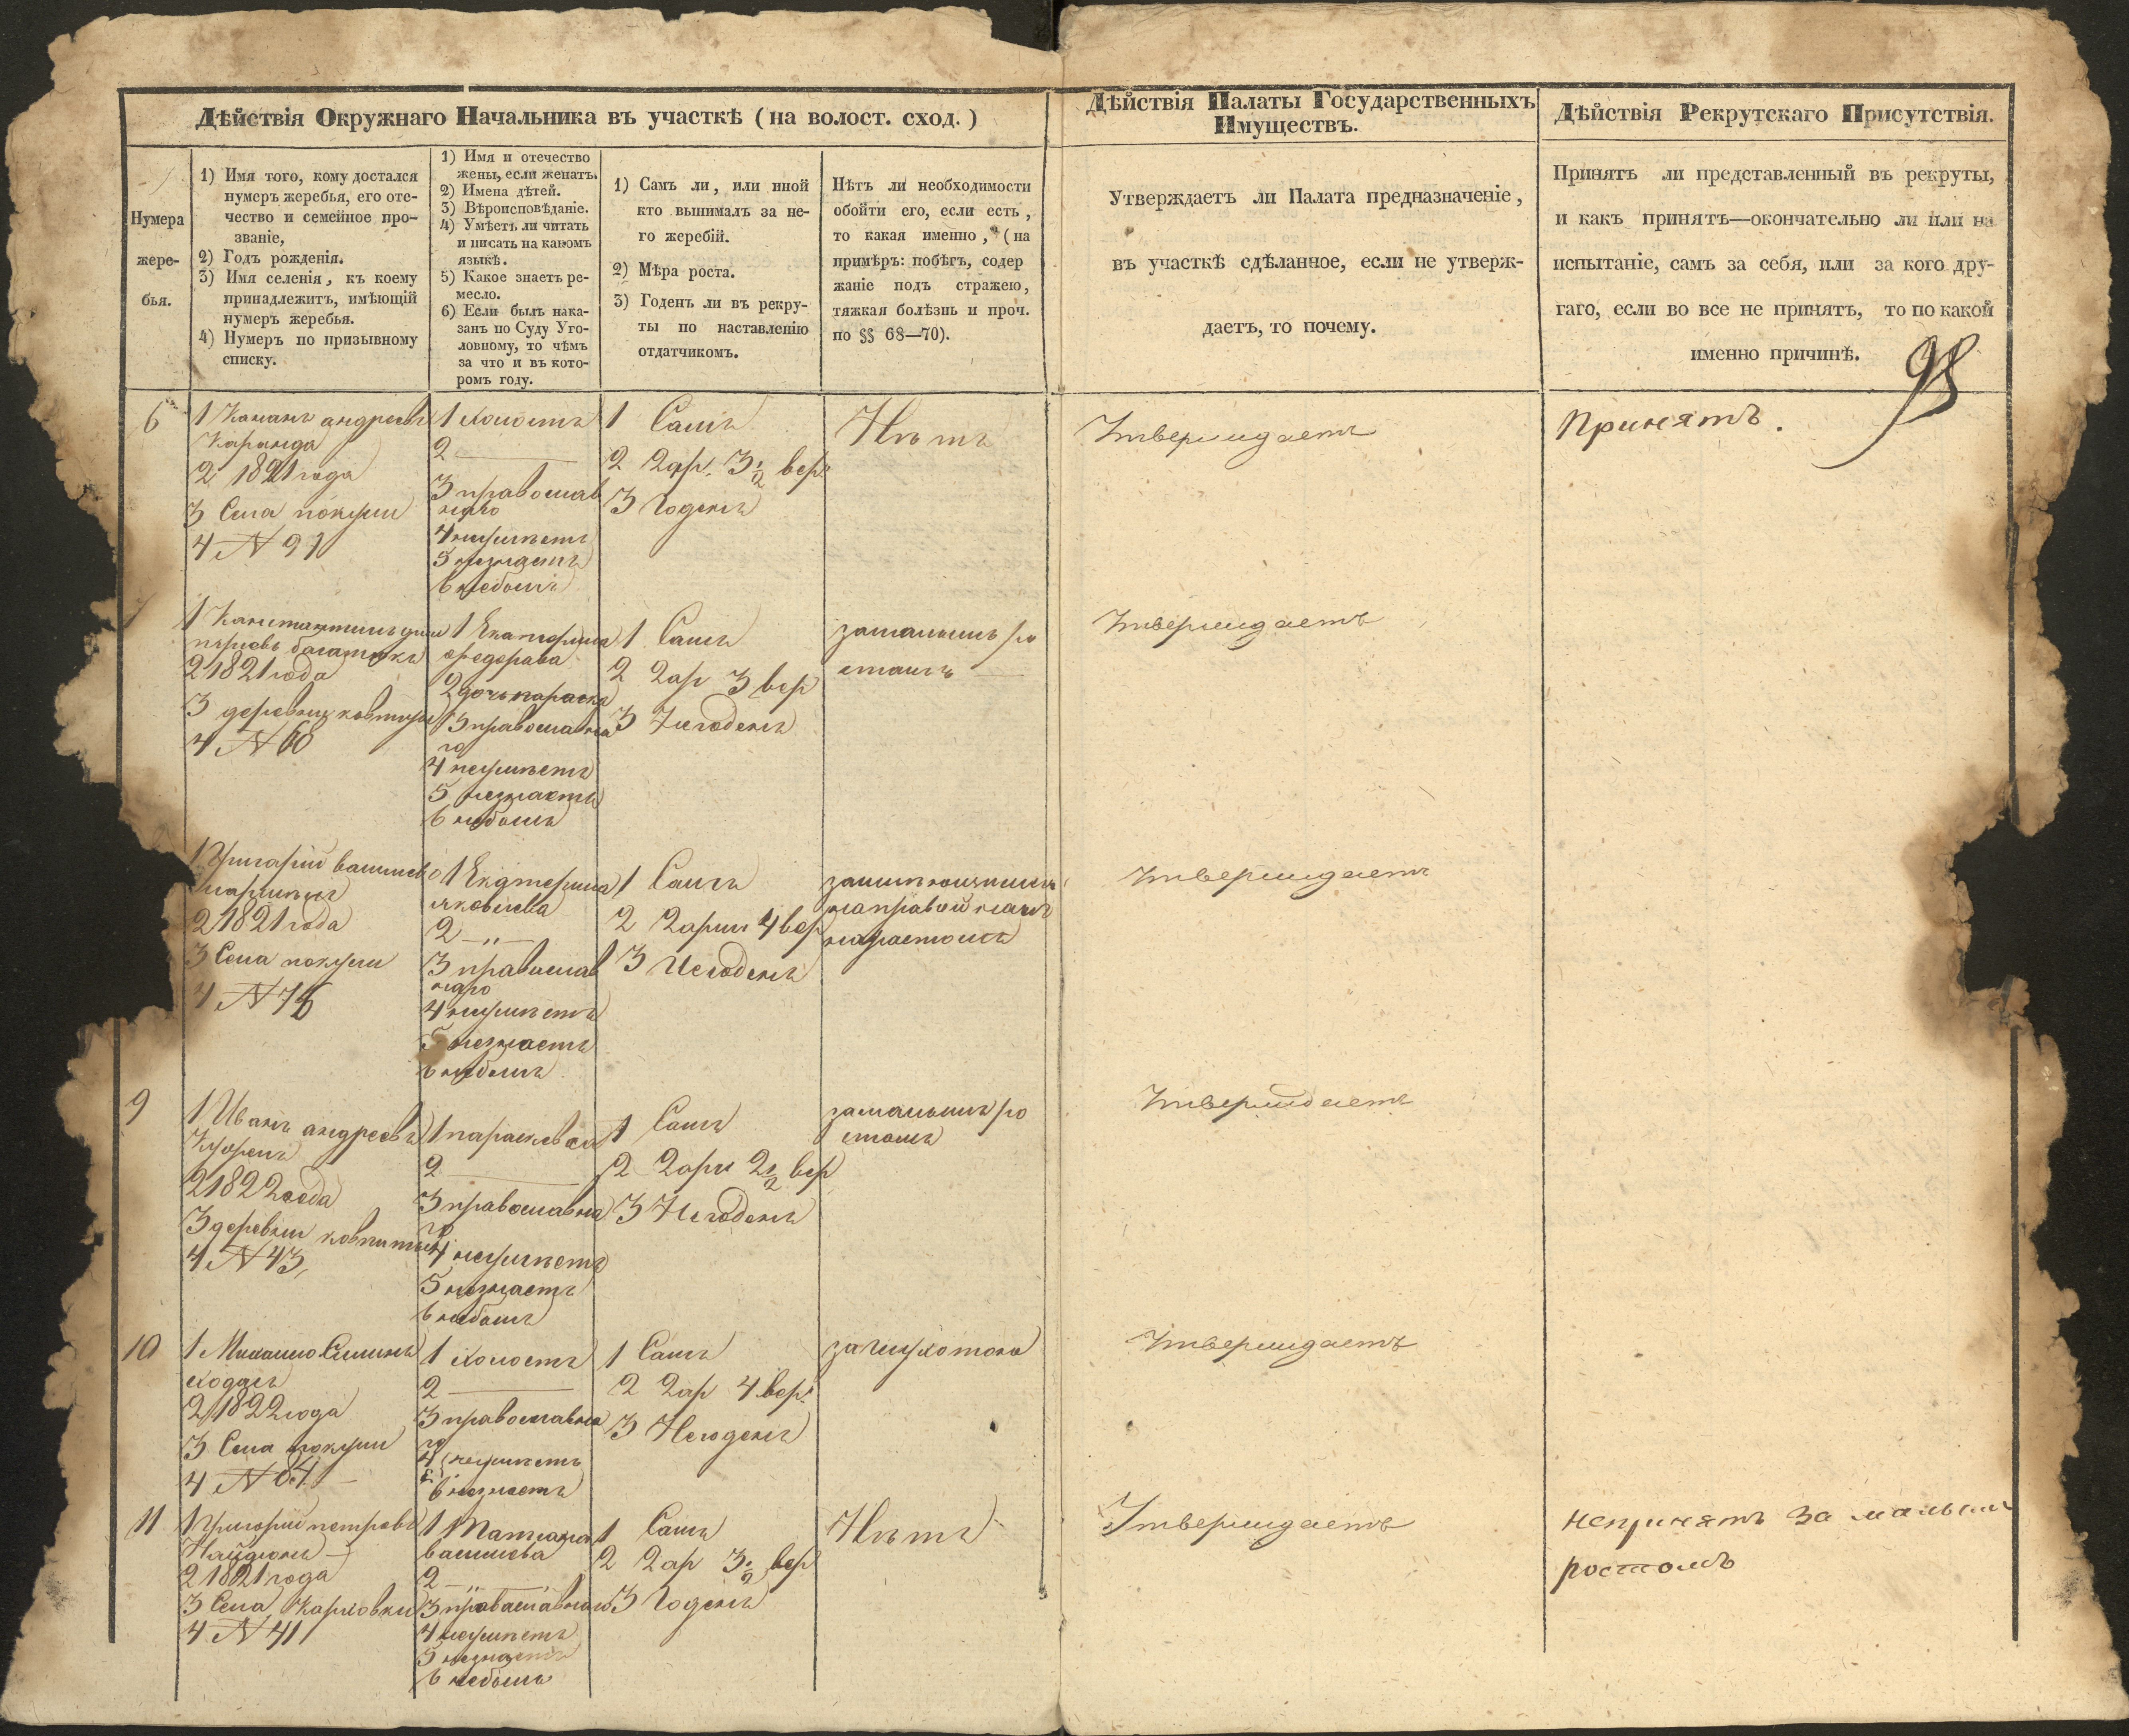 Дѣйствія Окружнаго Начальника въ участкѣ (на волост. сход.)
Дѣйствія Палаты Государственныхъ
Имуществъ.
Дѣйствія Рекрутскаго Присутствія.
Нумера
жере-
бья.
1) Имя того, кому достался
нумеръ жеребья, его оте-
чество и семейное про-
званіе,
2) Годъ рожденія.
3) Имя селенія, къ коему
принадлежитъ, имѣющій
нумеръ жеребья.
4) Нумеръ по призывному
списку.
1) Имя и отечество
жены, если женатъ.
2) Имена дѣтей.
3) Вѣроисповѣданіе.
4) Умѣетъ ли читать
и писать на какомъ
языкѣ.
5) Какое знаетъ ре-
месло.
6) Если былъ нака-
занъ по Суду Уго-
ловному, то чѣмъ
за что и въ кото-
ромъ году.
1) Самъ ли, или иной
кто вынималъ за не-
го жеребій.
2) Мѣра роста.
3) Годенъ ли въ рекру-
ты по наставленію
отдатчикомъ.
Нѣтъ ли необходимости
обойти его, если есть,
то какая именно, (на
примѣръ: побѣгъ, содер
жаніе подъ стражею,
тяжкая болѣзнь и проч.
по §§ 68—70).
Утверждаетъ ли Палата предназначеніе,
въ участкѣ сдѣланное, если не утверж-
даетъ, то почему.
Принятъ ли представленный въ рекруты,
и какъ принятъ—окончательно ли или на
испытаніе, самъ за себя, или за кого дру-
гаго, если во все не принятъ, то по какой
именно причинѣ.
98
6
1 андреевъ
2 1821 года
3 Села покули
4 N 91
1 холостъ
2
3 православ
наго
4 неумѣетъ
5 незнаетъ
6 небылъ
1 Самъ
2 2 ар. 3 1/2 вер
3 Годенъ
Нѣтъ
Утверждаетъ
Принятъ.
1
2 1821 года
3 деревни
4 N 60
1 Екатерина
федорава
2 дочь параска
3 православна
го
4 неумѣетъ
5 незнаетъ
6 небылъ
1 Самъ
2 2 ар 3 вер
3 Негоденъ
замалымъ ро
стомъ
Утверждаетъ
1 Григорій василев
2 1821 года
3 Села покули
4 N
1 Екатерина
яковлева
2 —„—
3 православ
наго
4 неумѣетъ
5 незнаетъ
6 небылъ
1 Самъ
2 2 арши 4 вер
3 Негоденъ
Утверждаетъ
9
1 Иванъ андреевъ
2 1822 года
3 деревни
4 N 43
1
2
3 православна
го
4 неумѣетъ
5 незнаетъ
6 небылъ
1 Самъ
2 2 арш 2 1/2 вер
3 Негоденъ
замалымъ ро
стомъ
Утверждаетъ
10
1 Михайло
2 1822 года
3 Села покули
4 N 84
1 холостъ
2
3 православна
го
4 неумѣетъ
6 незнаетъ
1 Самъ
2 2 ар 4 вер
3 Негоденъ
заглухотою
Утверждаетъ
11
1 Григорій петровъ
2 1821 года
3 Села Карловки
4 N 41
1 Татіана
василева
2
3 православнаго
4 неумѣетъ
5 незнаетъ
6 небылъ
1 Самъ
2 2 ар 3 1/2 вер
3 Годенъ
Нѣтъ
Утверждаетъ
непринятъ за малымъ
ростомъ